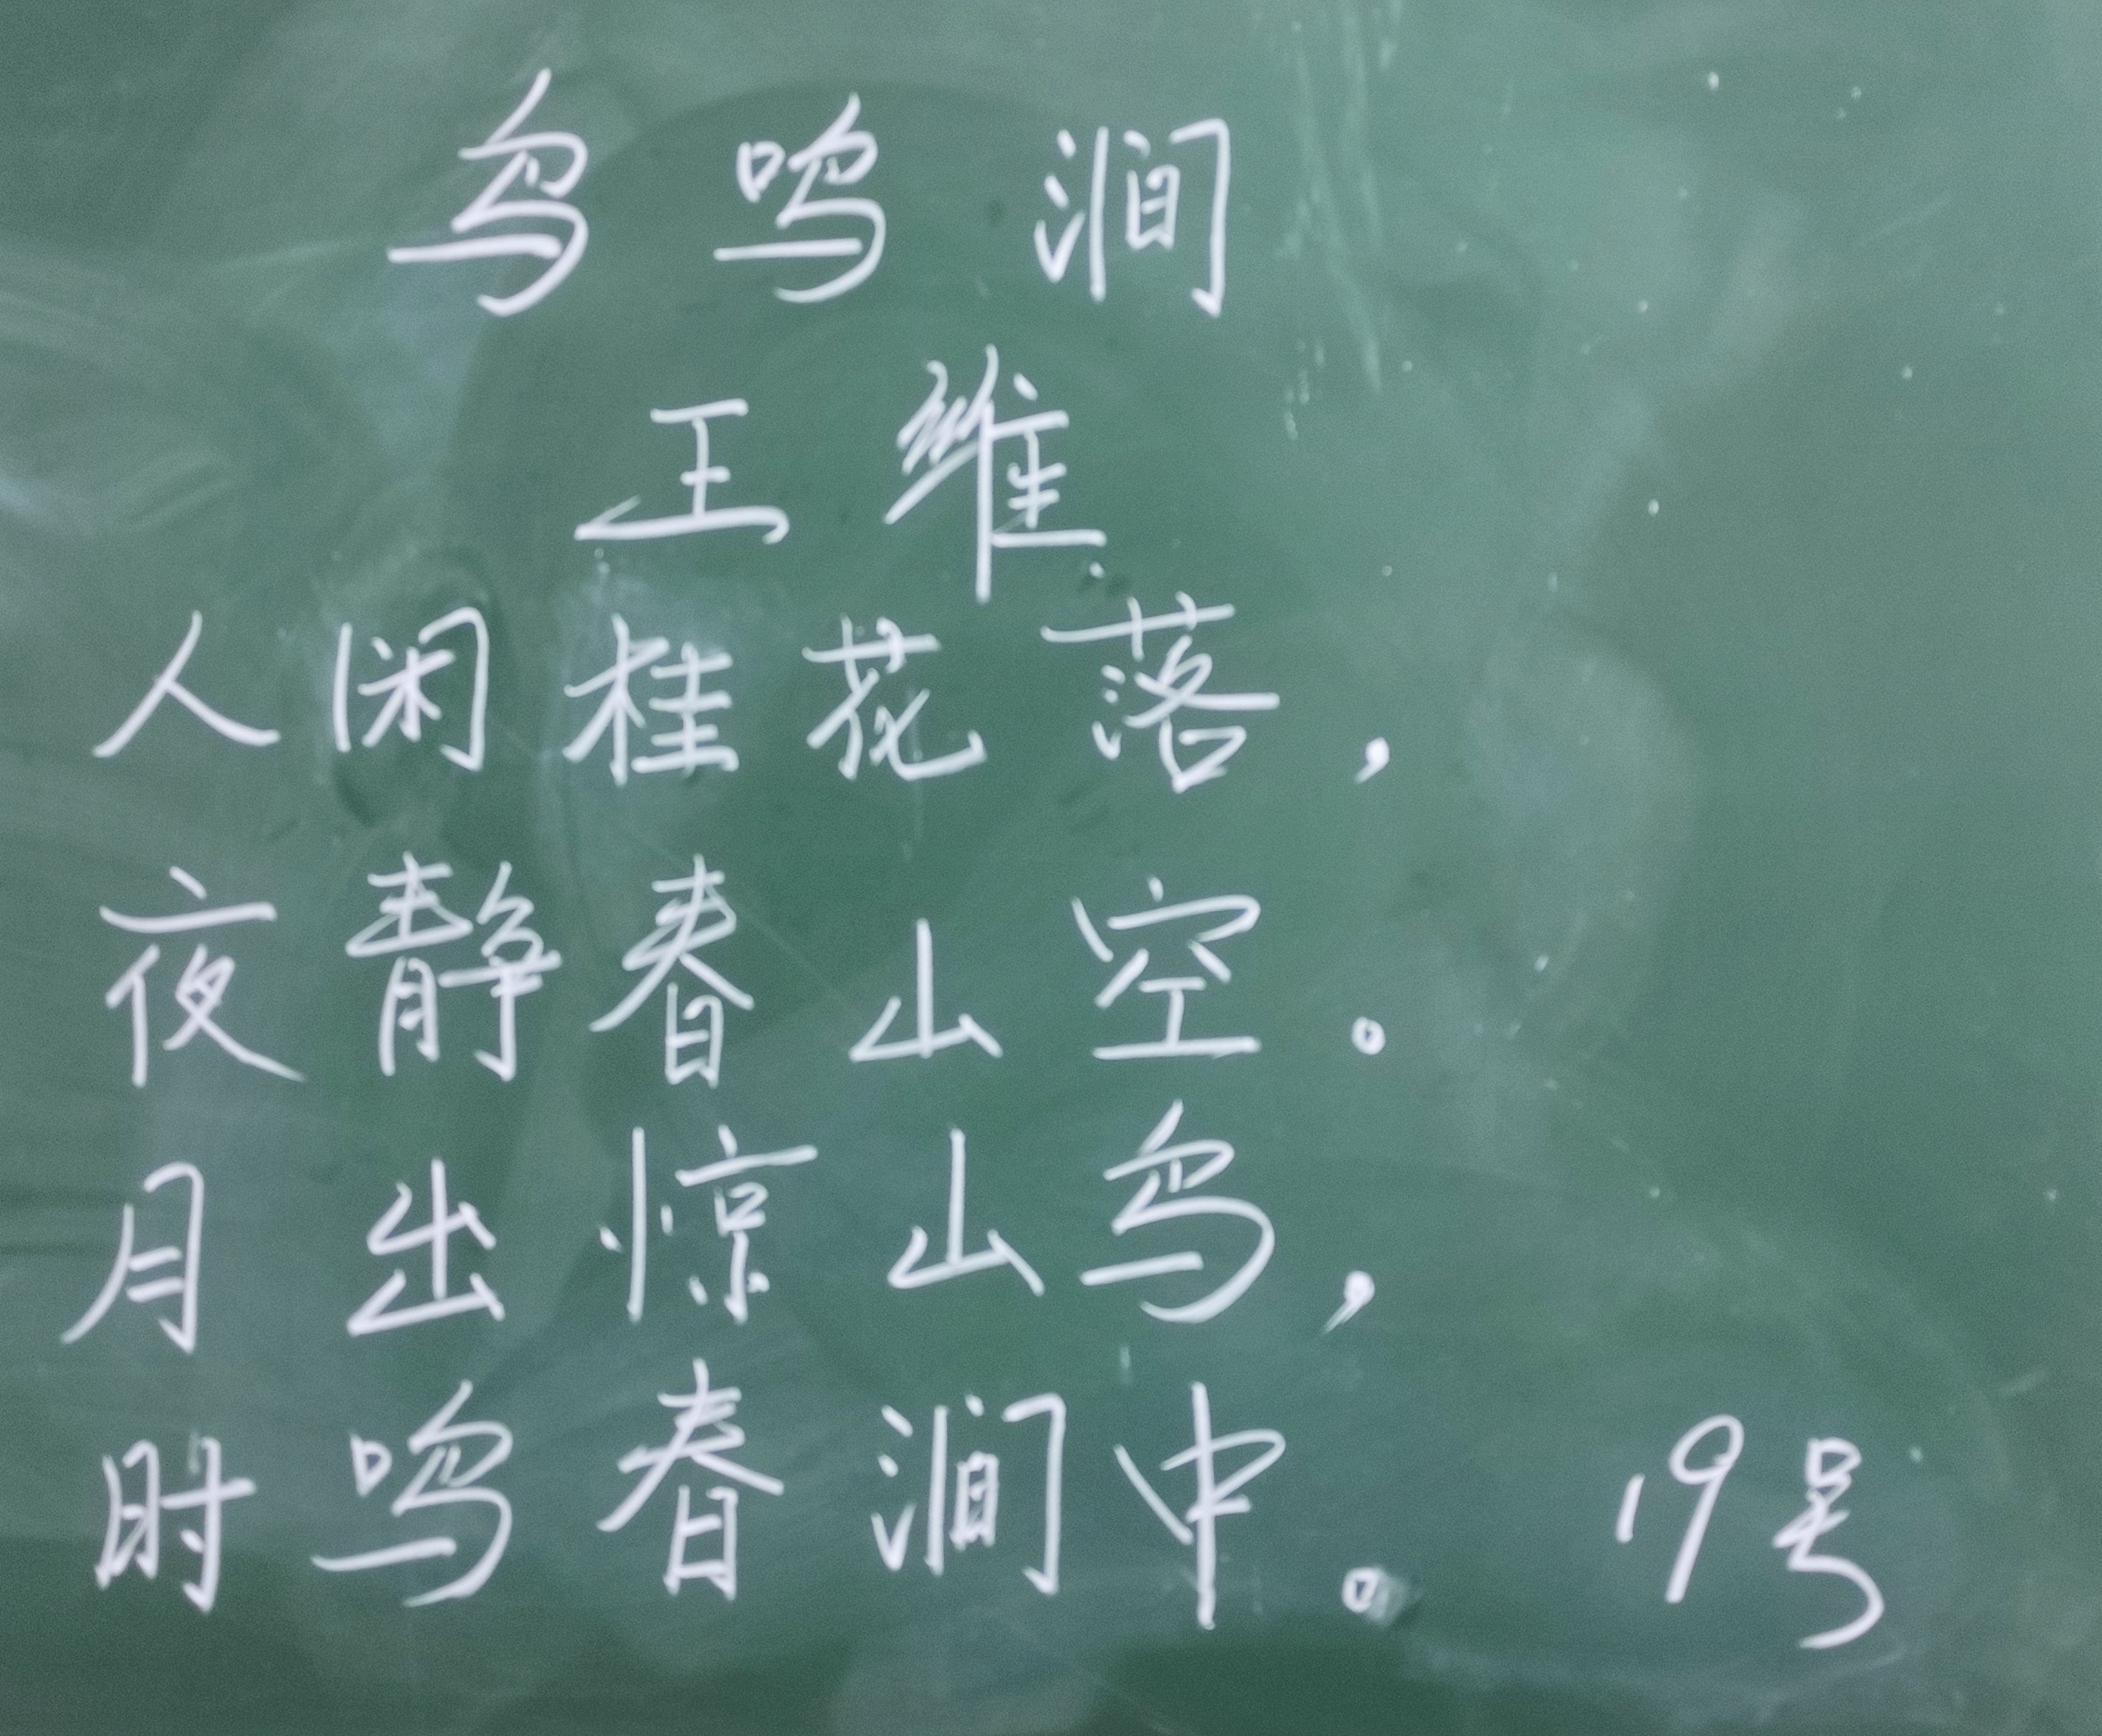 鸟鸣涧
王维
人闲桂花落，
夜静春山空。
月出惊山鸟，
时鸣春涧中。 19号